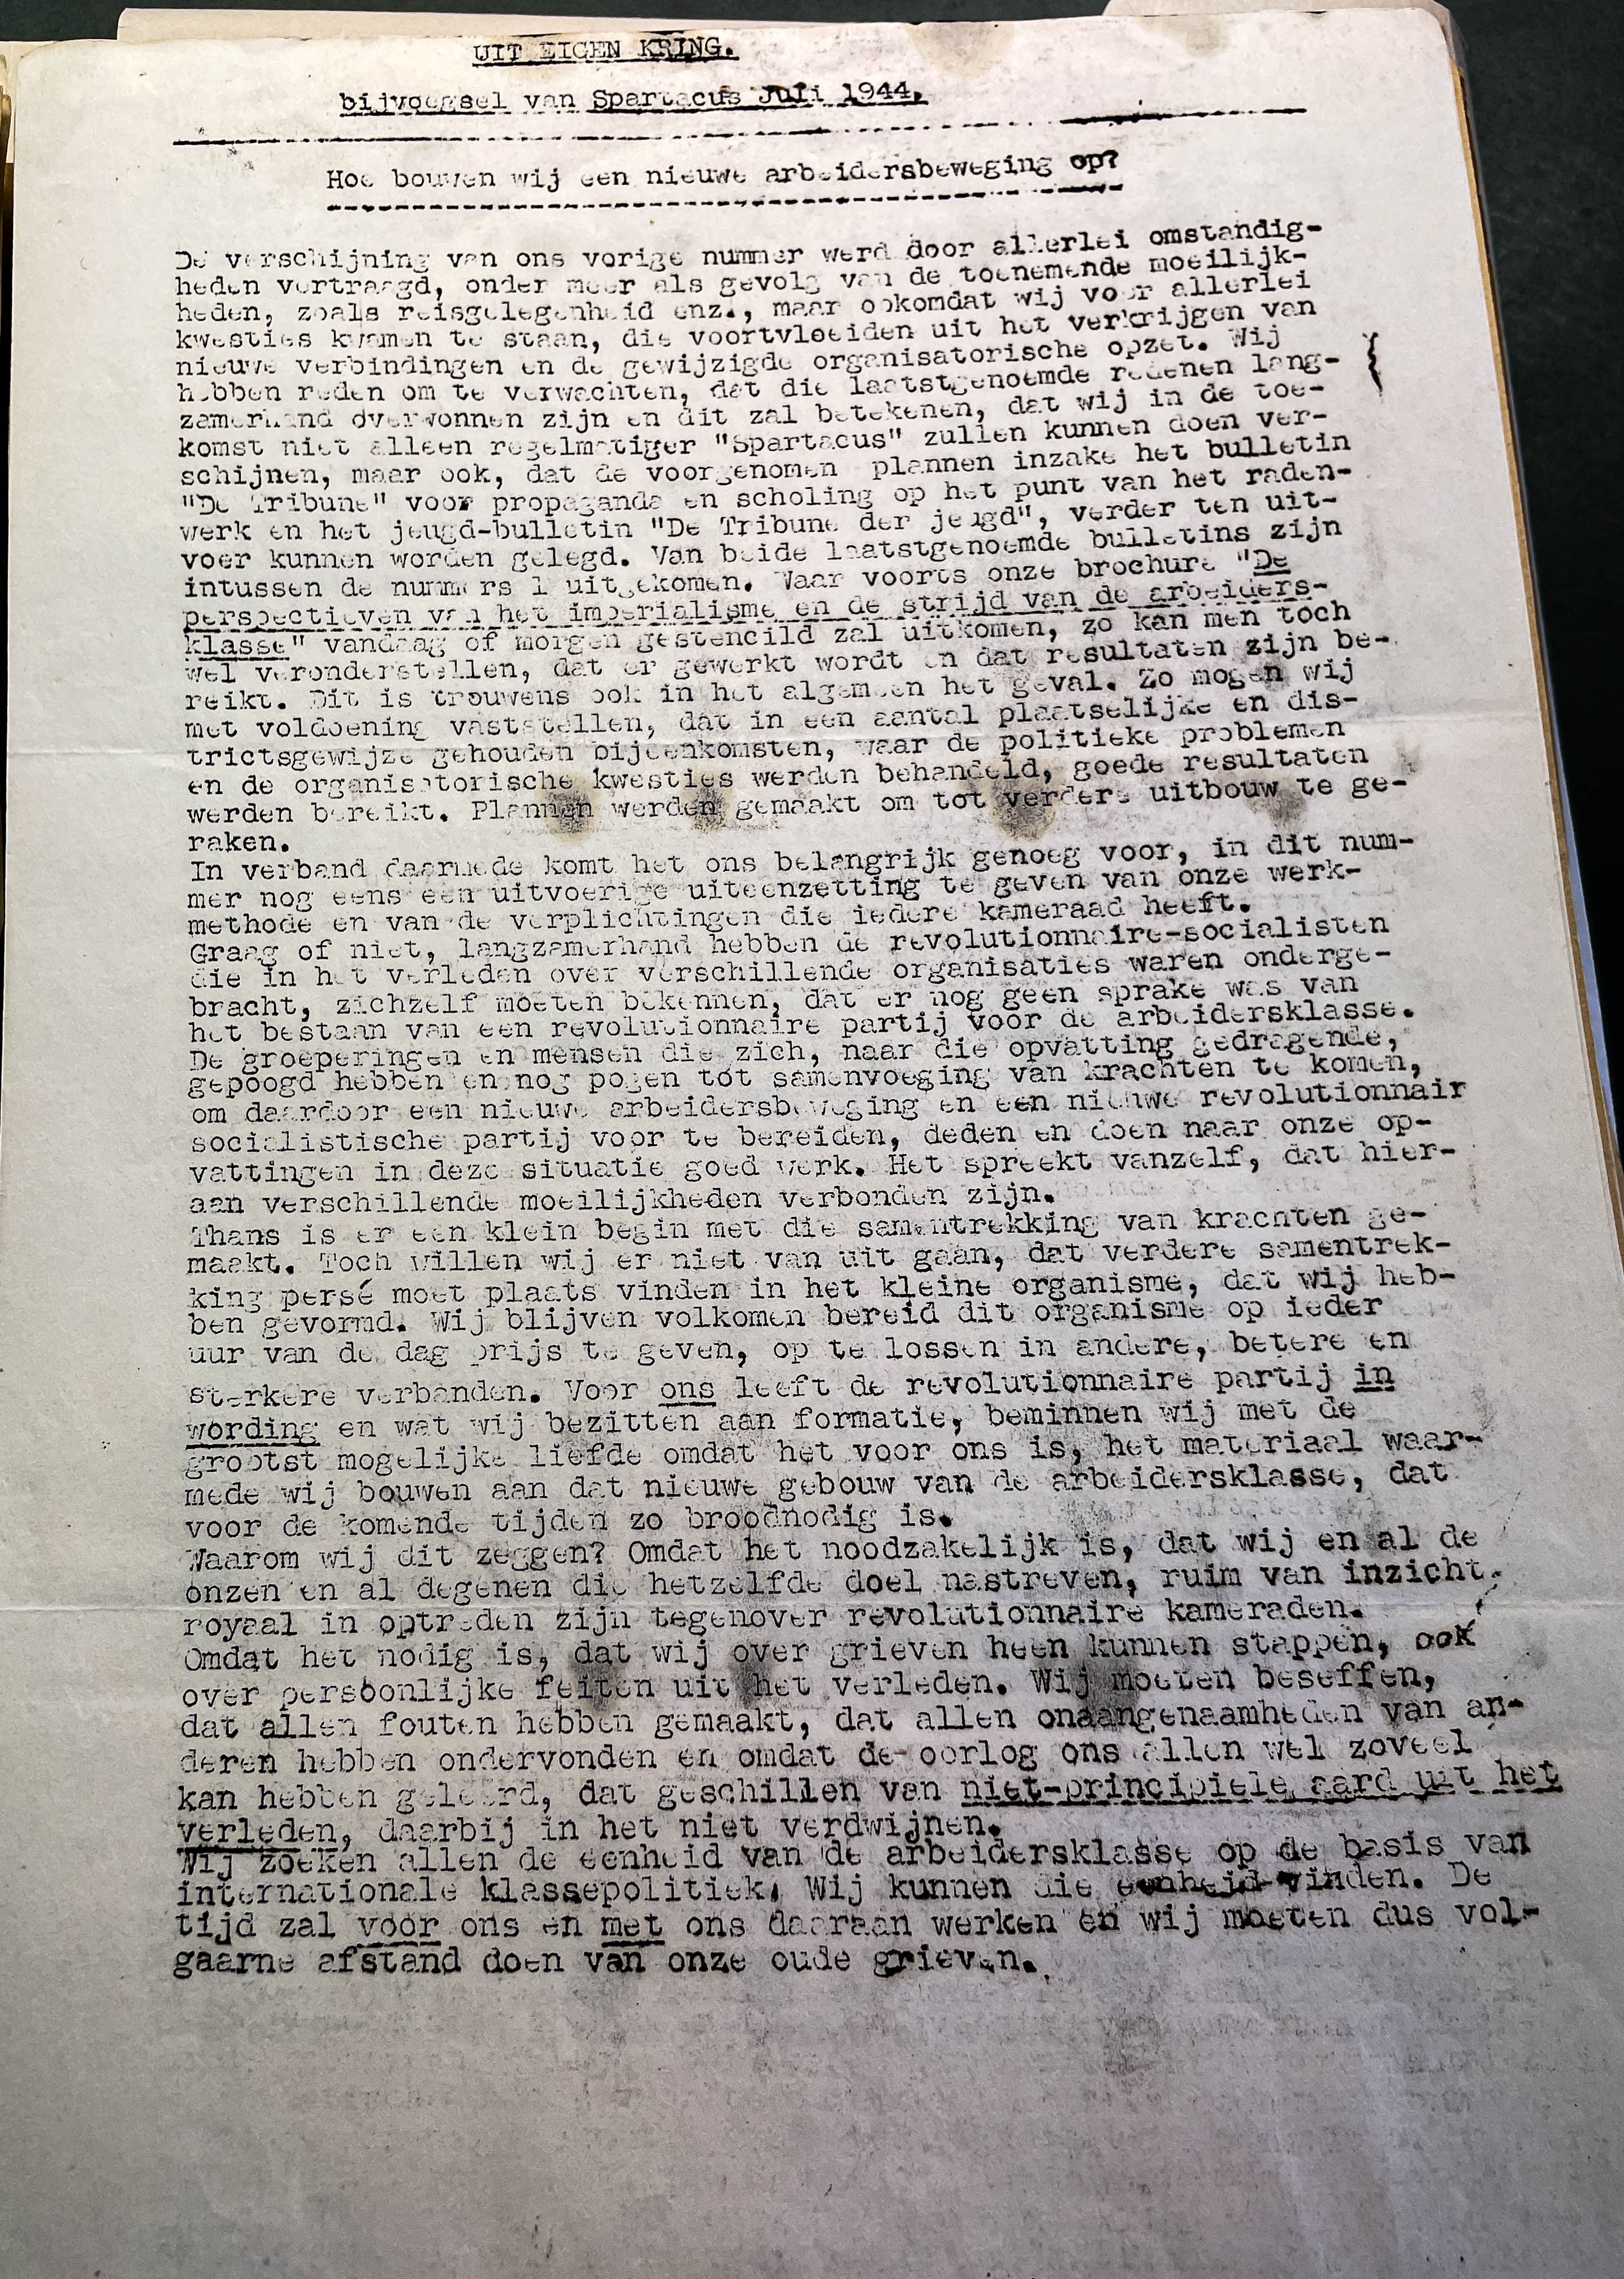 UIT EIGEN KRING.
bijvoegsel van Spartacus Juli 1944.
Hoe bouwen wij een nieuwe arbeidersbeweging op?
De verschijning van ons vorige nummer werd door allerlei omstandig-
heden vertraagd, onder meer als gevolg van de toenemende moeilijk-
heden, zoals reisgelegenheid enz., maar ookomdat wij voor allerlei
kwesties kwamen te staan, die voortvloeiden uit het verkrijgen van
nieuwe verbindingen en de gewijzigde organisatorische opzet. Wij
hebben reden om te verwachten, dat die laatstgenoemde redenen lang-
zamerhand overwonnen zijn en dit zal betekenen, dat wij in de toe-
komst niet alleen regelmatiger "Spartacus" zullen kunnen doen ver-
schijnen, maar ook, dat de voorgenomen plannen inzake het bulletin
"De Tribune" voor propaganda en scholing op het punt van het raden-
werk en het jeugd-bulletin "De Tribune der jeugd", verder ten uit-
voer kunnen worden gelegd. Van beide laatstgenoemde bulletins zijn
intussen de nummers 1 uitgekomen. Waar voorts onze brochure "De
perspectieven van het imperialisme en de strijd van de arbeiders-
klasse" vandaag of morgen gestencild zal uitkomen, zo kan men toch
wel veronderstellen, dat er gewerkt wordt en dat resultaten zijn be-
reikt. Dit is trouwens ook in het algemeen het geval. Zo mogen wij
met voldoening vaststellen, dat in een aantal plaatselijke en dis-
trictsgewijze gehouden bijeenkomsten, waar de politieke problemen
en de organisatorische kwesties werden behandeld, goede resultaten
werden bereikt. Plannen werden gemaakt om tot verdere uitbouw te ge-
raken.
In verband daarmede komt het ons belangrijk genoeg voor, in dit num-
mer nog eens een uitvoerige uiteenzetting te geven van onze werk-
methode en van de verplichtingen die iedere kameraad heeft.
Graag of niet, langzamerhand hebben de revolutionnaire-socialisten
die in het verleden over verschillende organisaties waren onderge-
bracht, zichzelf moeten bekennen, dat er nog geen sprake was van
het bestaan van een revolutionnaire partij voor de arbeidersklasse.
De groeperingen en mensen die zich, naar die opvatting gedragende,
gepoogd hebben en nog pogen tot samenvoeging van krachten te komen,
om daardoor een nieuwe arbeidersbeweging en een nieuwe revolutionnair
socialistische partij voor te bereiden, deden en doen naar onze op-
vattingen in deze situatie goed werk. Het spreekt vanzelf, dat hier-
aan verschillende moeilijkheden verbonden zijn.
Thans is er een klein begin met die samentrekking van krachten ge-
maakt. Toch willen wij er niet van uit gaan, dat verdere samentrek-
king persé moet plaats vinden in het kleine organisme, dat wij heb-
ben gevormd. Wij blijven volkomen bereid dit organisme op ieder
uur van de dag prijs te geven, op te lossen in andere, betere en
sterkere verbanden. Voor ons leeft de revolutionnaire partij in
wording en wat wij bezitten aan formatie, beminnen wij met de
grootst mogelijke liefde omdat het voor ons is, het materiaal waar-
mede wij bouwen aan dat nieuwe gebouw van de arbeidersklasse, dat
voor de komende tijden zo broodnodig is.
Waarom wij dit zeggen? Omdat het noodzakelijk is, dat wij en al de
onzen en al degenen die hetzelfde doel nastreven, ruim van inzicht.
royaal in optreden zijn tegenover revolutionnaire kameraden.
Omdat het nodig is, dat wij over grieven heen kunnen stappen, ook
over persoonlijke feiten uit het verleden. Wij moeten beseffen,
dat allen fouten hebben gemaakt, dat allen onaangenaamheden van an-
deren hebben ondervonden en omdat de oorlog ons allen wel zoveel
kan hebben geleerd, dat geschillen van niet-principiele aard uit het
verleden, daarbij in het niet verdwijnen.
Wij zoeken allen de eenheid van de arbeidersklasse op de basis van
internationale klassepolitiek. Wij kunnen die eenheid vinden. De
tijd zal voor ons en met ons daaraan werken en wij moeten dus vol-
gaarne afstand doen van onze oude grieven.